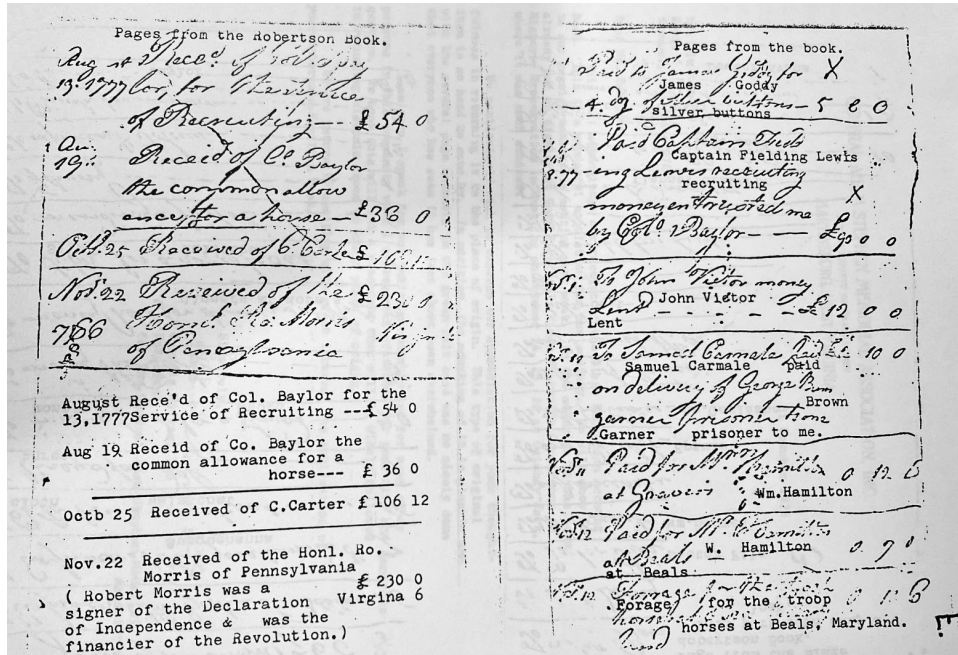 Pages from the Robertson Book.
Aug
13. 1777
of Recruiting -- £ 54 0
19. Receid of Co Baylor
the common allow
ancy for a horse - £36 0
Octb. 25 Received of C. Carter £ 106 12
Nov. 22 Received of the £ 230 0
Honl. Ro. Morris
of Pennsylvania
August Rece'd of Col. Baylor for the
13,1777Service of Recruiting ---£ 54 0
Aug 19 Receid of Co. Baylor the
common allowance for a
horse--- £ 36 0
Octb 25 Received of C.Carter £ 106 12
Nov.22 Received of the Honl. Ro.
Morris of Pennsylvania
( Robert Morris was a £ 230 0
signer of the Declaration Virgina 6
of Independence & was the
financier of the Revolution.)
Pages from the book.
Paid to James Goddy for X
James Goddy
4. dz. of silver buttons - 5 0 0
silver buttons
Paid Captain Field
Captain Fielding Lewis
8.77 -ing Lewis recruiting
recruiting
money entrusted me X
by Colo. Baylor - - £90 0 0
To John Victor money
John Victor
Lent - - - - £ 12 0 0
Lent
To Samuel Carmale paid 10 0
Samuel Carmale paid
on delivery of George Brown
Brown
garner prisoner to me
Garner prisoner to me.
Paid for Mr. Hamilton 0 12 6
at Wm.Hamilton
12 Paid for Mr. Hamilton
W. Hamilton 0 7
at Beals
at Beals
Forrage for the
Forage for the troop
horses at Beals, Maryland.